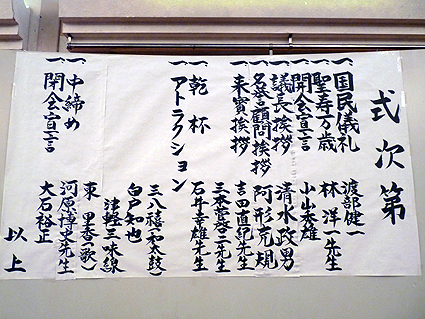 式次第
一、国民儀礼 渡部健一
一、聖寿万歳 林洋一先生
一、開会宣言 小山秀雄
一、議長挨拶 清水政男
一、名誉顧問挨拶 阿形充規
一、来賓挨拶 吉田直紀先生
三本菅啓二先生
一、乾杯 石井幸雄先生
一、アトラクション
三八禧(太鼓)
白戸知也
津軽三味線
東里香(歌)
一、中締め 河原博史先生
一、閉会宣言 大石裕正
以上